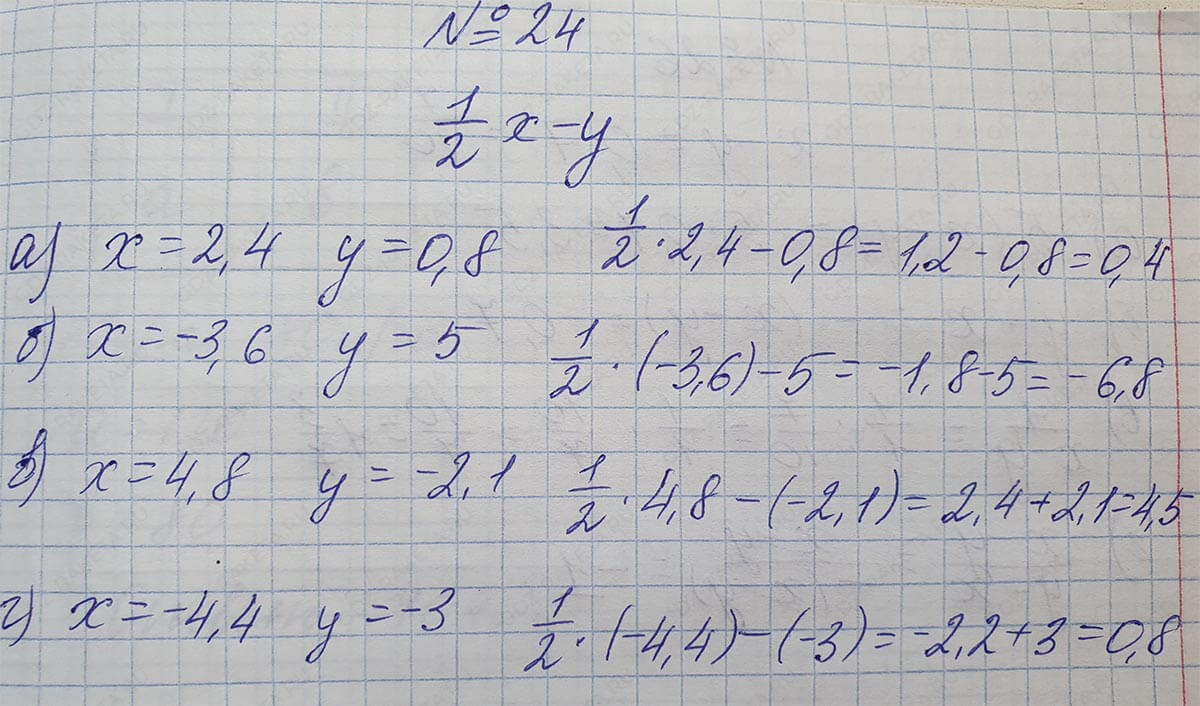 № 24
1/2 x - y
а) x = 2,4 y = 0,8 1/2 · 2,4 - 0,8 = 1,2 - 0,8 = 0,4
б) x = -3,6 y = 5 1/2 · (-3,6) - 5 = -1,8 - 5 = -6,8
в) x = 4,8 y = -2,1 1/2 · 4,8 - (-2,1) = 2,4 + 2,1 = 4,5
г) x = -4,4 y = -3 1/2 · (-4,4) - (-3) = -2,2 + 3 = 0,8